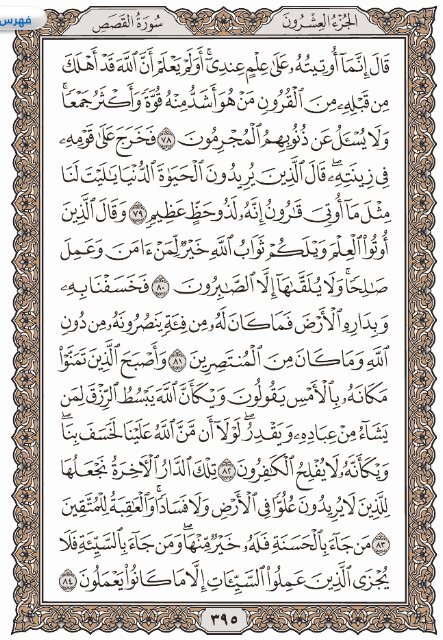 فهرس
الجزء العشرون
سورة القصص
قَالَ إِنَّمَآ أُوتِيتُهُۥ عَلَىٰ عِلْمٍ عِندِىٓ ۚ أَوَلَمْ يَعْلَمْ أَنَّ ٱللَّهَ قَدْ أَهْلَكَ
مِن قَبْلِهِۦ مِنَ ٱلْقُرُونِ مَنْ هُوَ أَشَدُّ مِنْهُ قُوَّةً وَأَكْثَرُ جَمْعًا ۚ
وَلَا يُسْـَٔلُ عَن ذُنُوبِهِمُ ٱلْمُجْرِمُونَ ٧٨ فَخَرَجَ عَلَىٰ قَوْمِهِۦ
فِى زِينَتِهِۦ ۖ قَالَ ٱلَّذِينَ يُرِيدُونَ ٱلْحَيَوٰةَ ٱلدُّنْيَا يَـٰلَيْتَ لَنَا
مِثْلَ مَآ أُوتِىَ قَـٰرُونُ إِنَّهُۥ لَذُو حَظٍّ عَظِيمٍ ٧٩ وَقَالَ ٱلَّذِينَ
أُوتُوا۟ ٱلْعِلْمَ وَيْلَكُمْ ثَوَابُ ٱللَّهِ خَيْرٌ لِّمَنْ ءَامَنَ وَعَمِلَ
صَـٰلِحًا وَلَا يُلَقَّىٰهَآ إِلَّا ٱلصَّـٰبِرُونَ ٨٠ فَخَسَفْنَا بِهِۦ
وَبِدَارِهِ ٱلْأَرْضَ فَمَا كَانَ لَهُۥ مِن فِئَةٍ يَنصُرُونَهُۥ مِن دُونِ
ٱللَّهِ وَمَا كَانَ مِنَ ٱلْمُنتَصِرِينَ ٨١ وَأَصْبَحَ ٱلَّذِينَ تَمَنَّوْا۟
مَكَانَهُۥ بِٱلْأَمْسِ يَقُولُونَ وَيْكَأَنَّ ٱللَّهَ يَبْسُطُ ٱلرِّزْقَ لِمَن
يَشَآءُ مِنْ عِبَادِهِۦ وَيَقْدِرُ ۖ لَوْلَآ أَن مَّنَّ ٱللَّهُ عَلَيْنَا لَخَسَفَ بِنَا ۖ
وَيْكَأَنَّهُۥ لَا يُفْلِحُ ٱلْكَـٰفِرُونَ ٨٢ تِلْكَ ٱلدَّارُ ٱلْـَٔاخِرَةُ نَجْعَلُهَا
لِلَّذِينَ لَا يُرِيدُونَ عُلُوًّا فِى ٱلْأَرْضِ وَلَا فَسَادًا ۚ وَٱلْعَـٰقِبَةُ لِلْمُتَّقِينَ
٨٣ مَن جَآءَ بِٱلْحَسَنَةِ فَلَهُۥ خَيْرٌ مِّنْهَا ۖ وَمَن جَآءَ بِٱلسَّيِّئَةِ فَلَا
يُجْزَى ٱلَّذِينَ عَمِلُوا۟ ٱلسَّيِّـَٔاتِ إِلَّا مَا كَانُوا۟ يَعْمَلُونَ ٨٤
٣٩٥